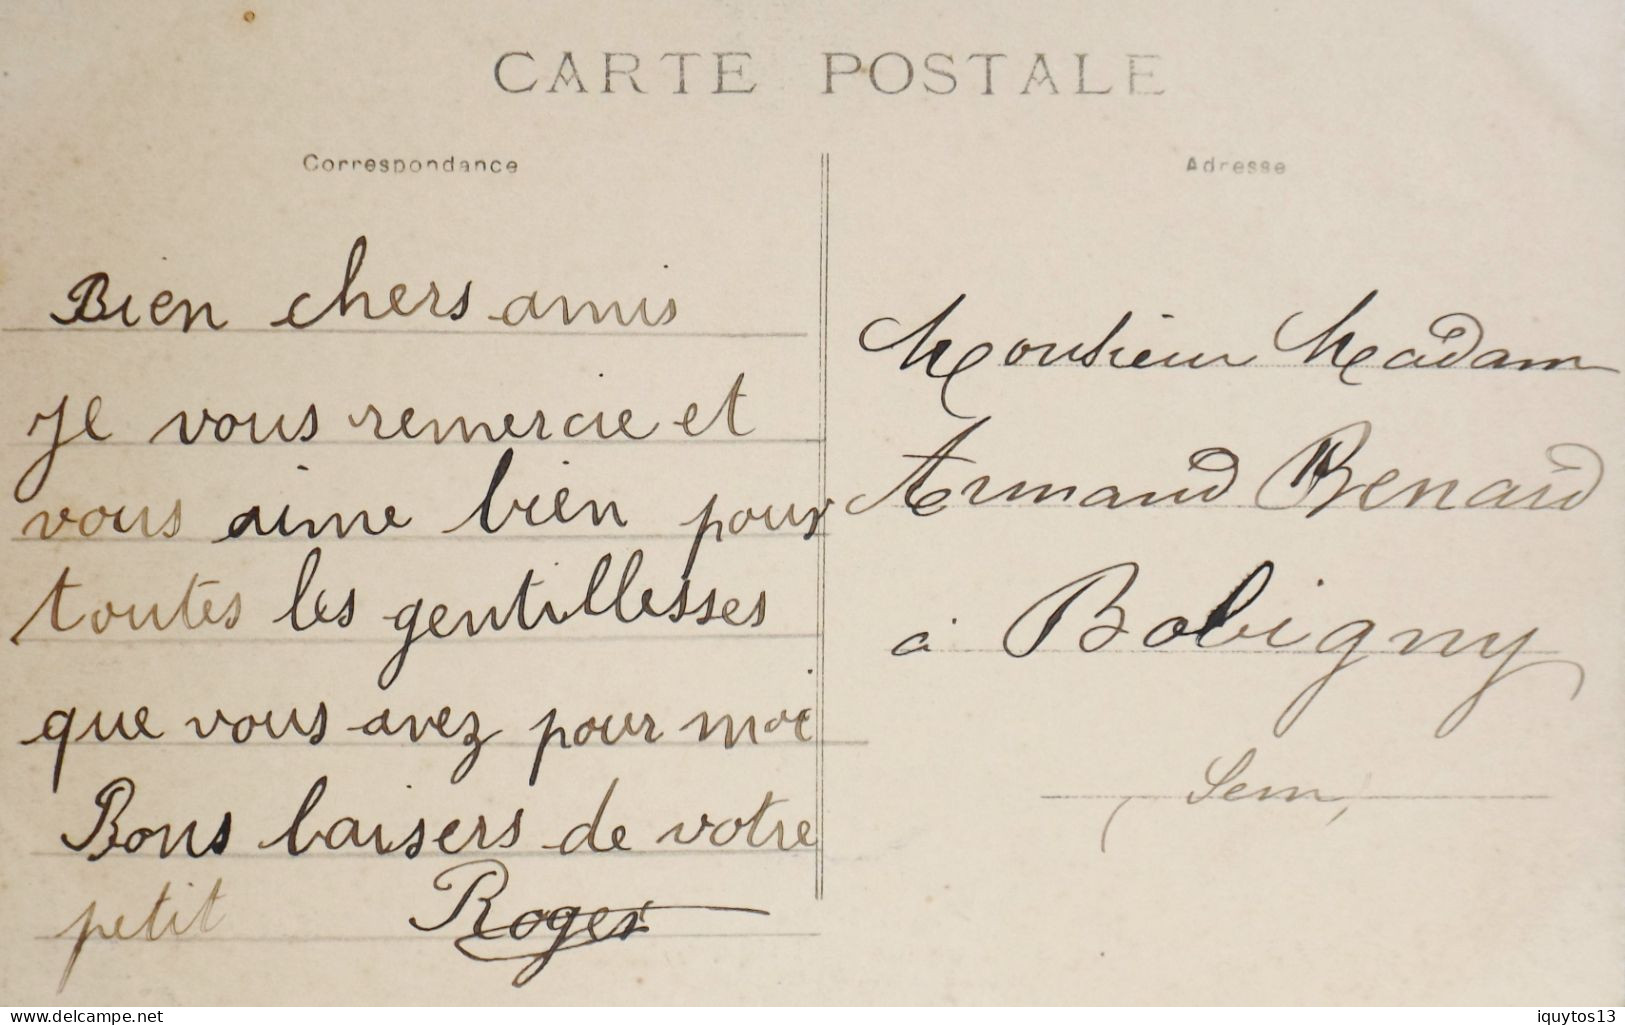 CARTE POSTALE
Correspondance
Bien chers amis
Je vous remercie et
vous aime bien pour
toutes les gentillesses
que vous avez pour moi
Bons baisers de votre
petit Roger
Adresse
Monsieur Madam
Armand Benard
à Bobigny
Sein
delcampe.net
iquytos13